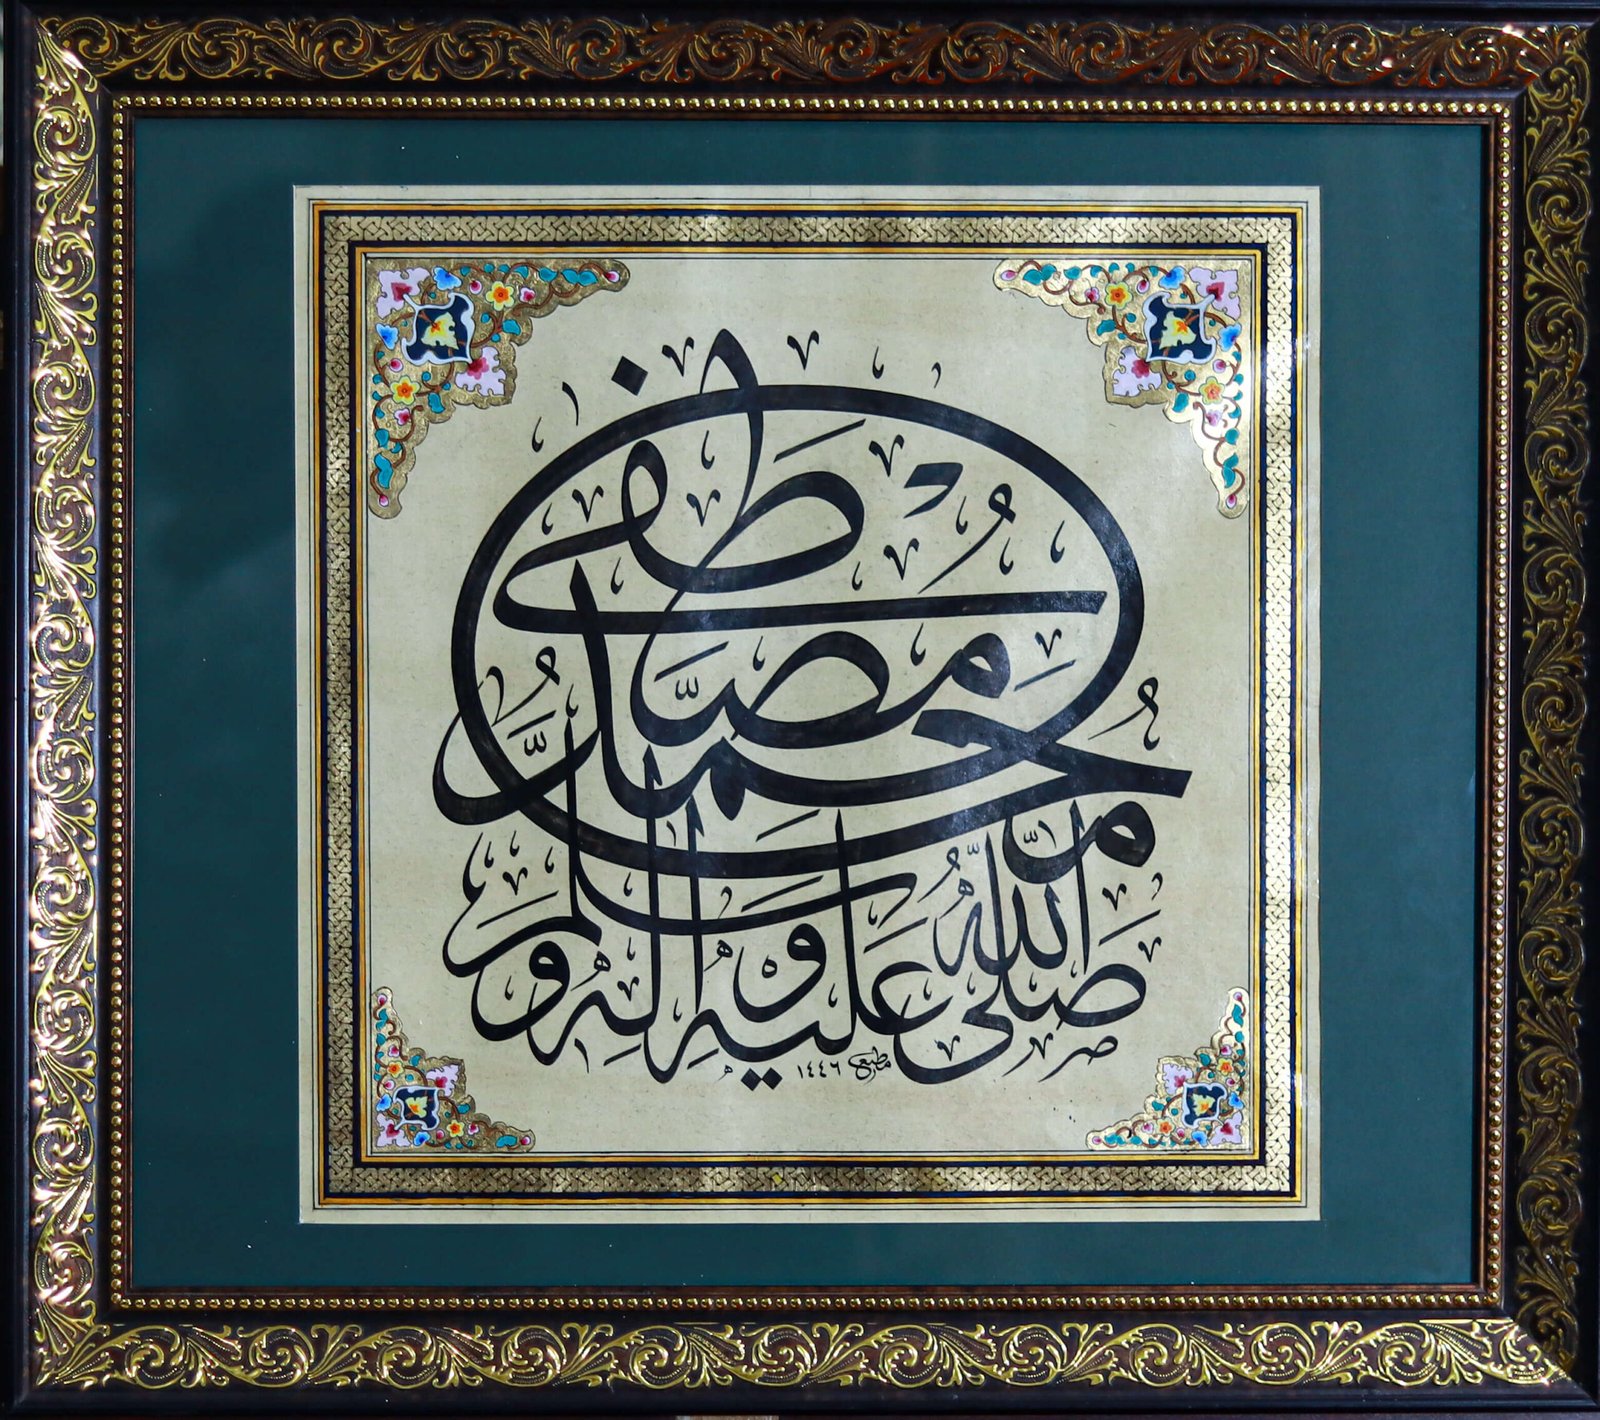 محمد مصطفى
صلى الله عليه وآله وسلم
١٤٤٦